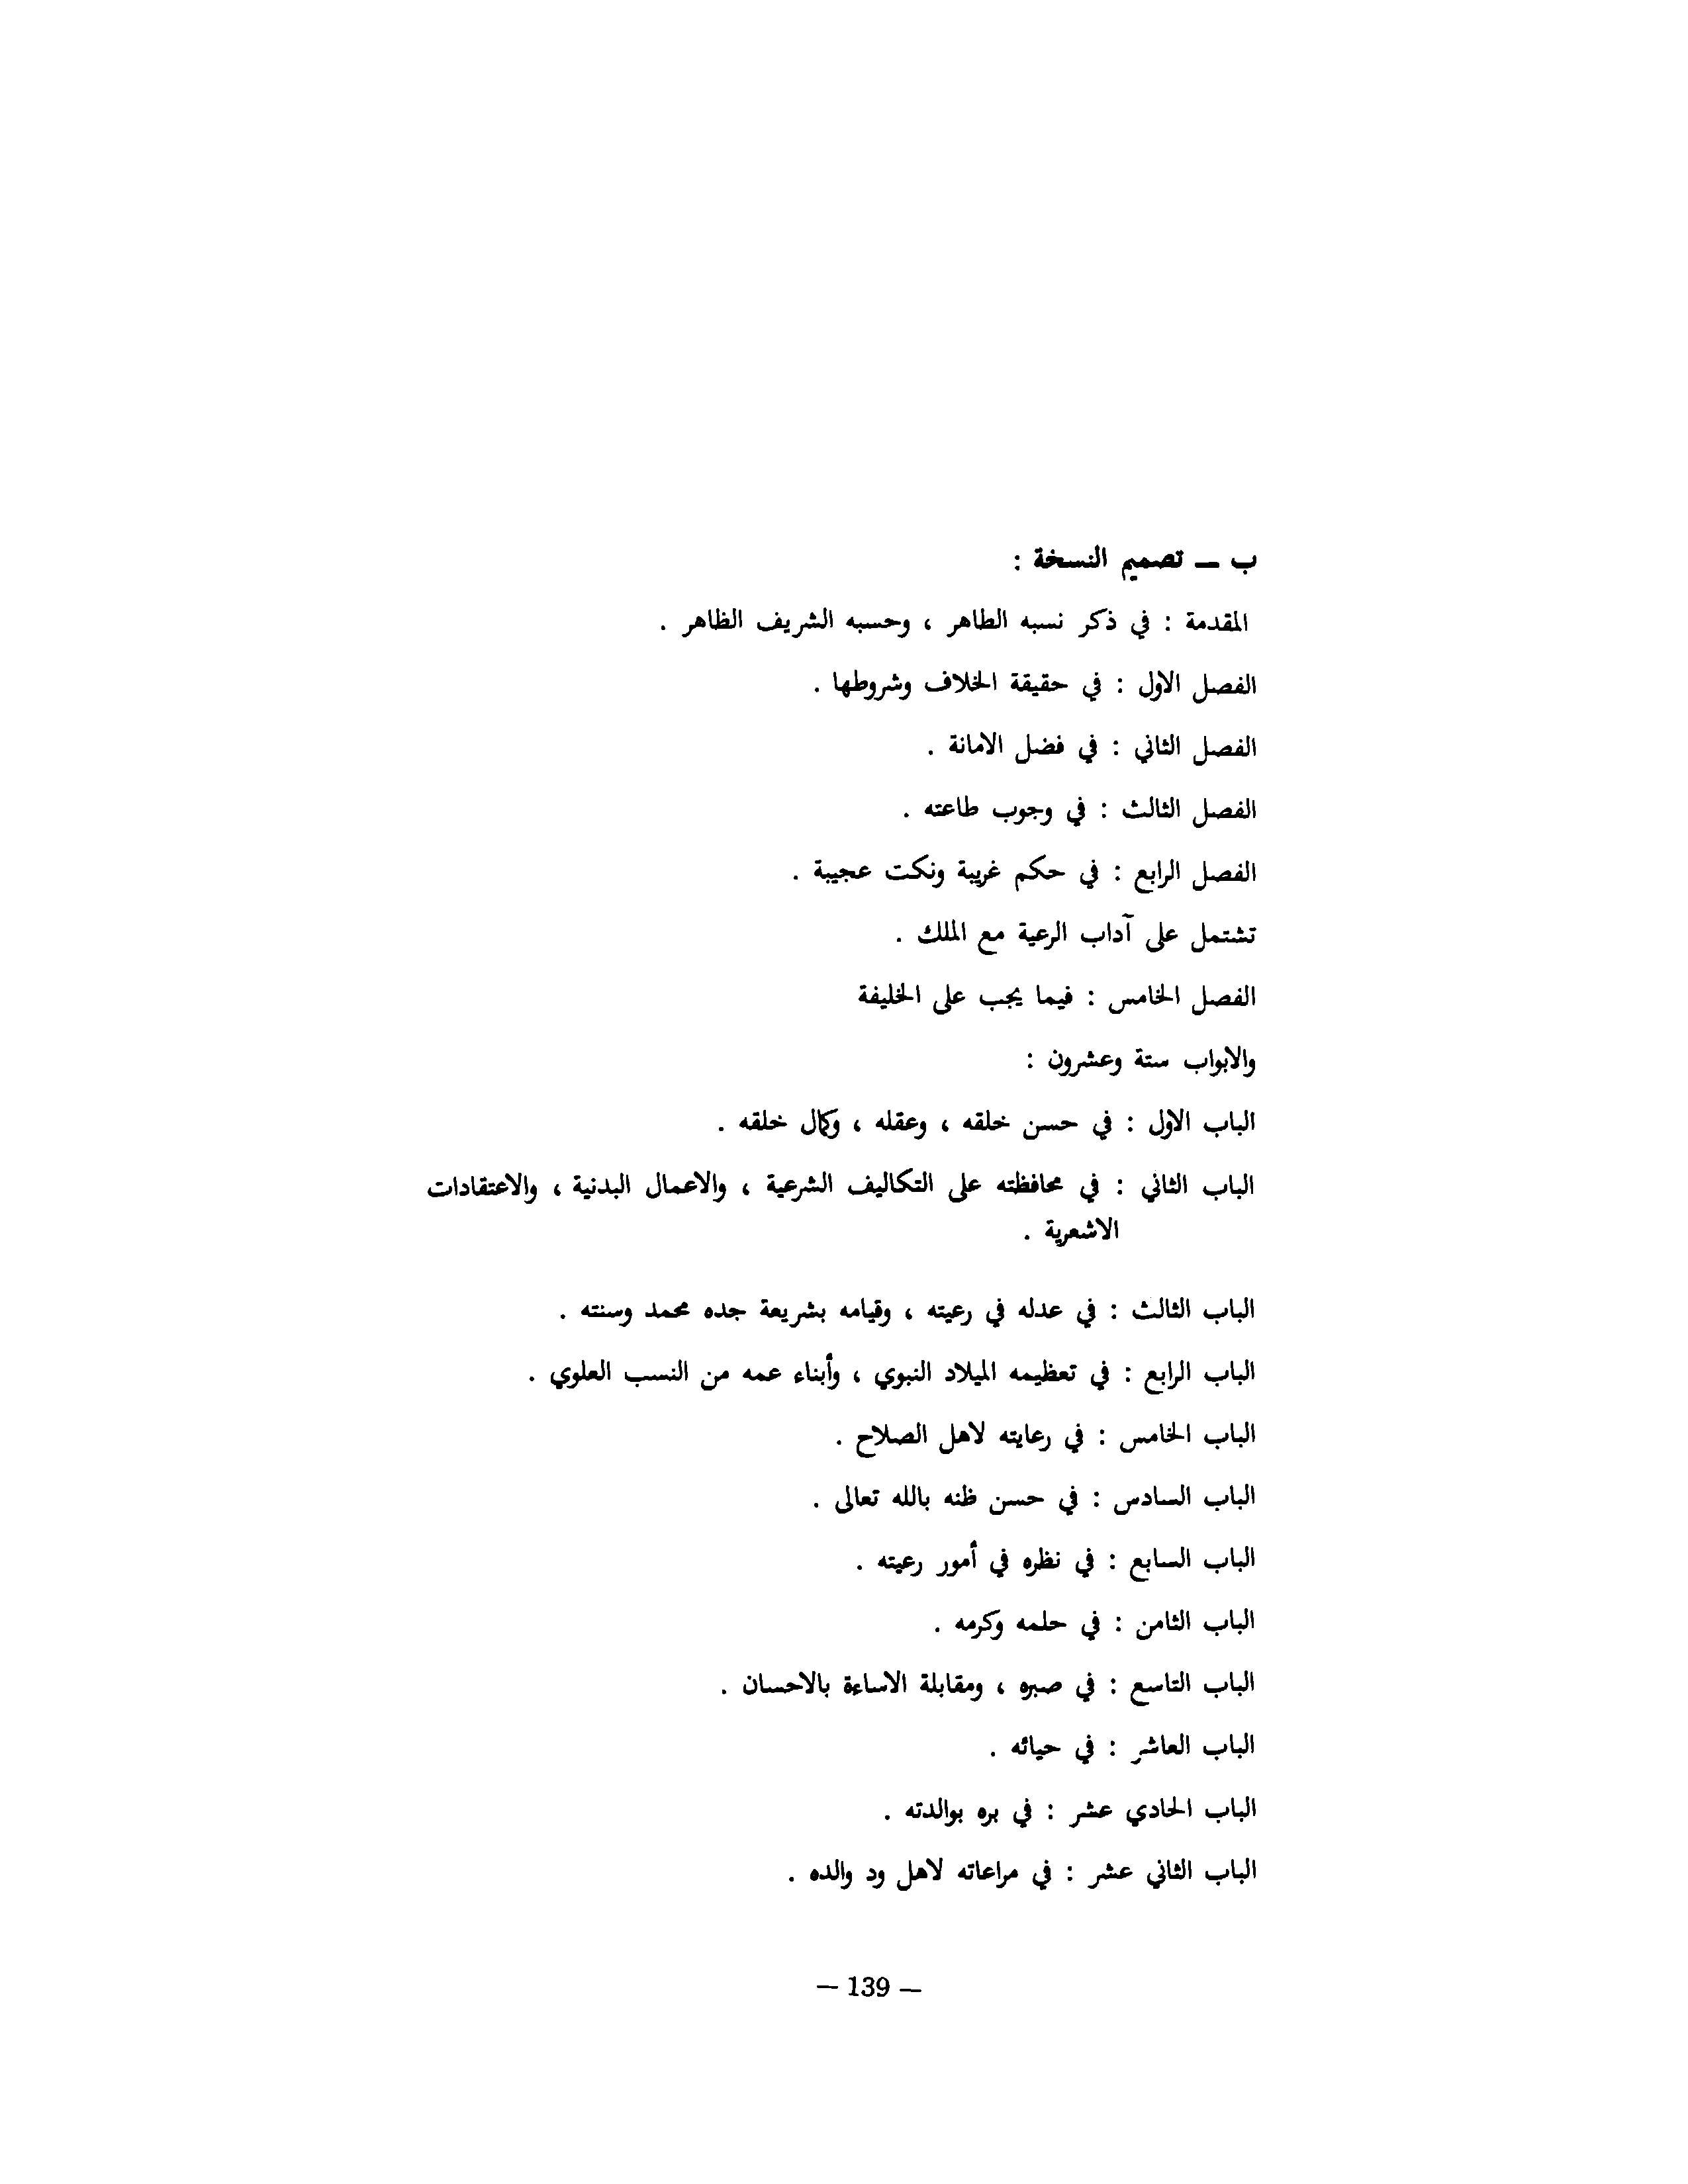 ب — تصميم النسخة :
المقدمة : في ذكر نسبه الطاهر ، وحسبه الشريف الظاهر .
الفصل الاول : في حقيقة الخلاف وشروطها .
الفصل الثاني : في فضل الامانة .
الفصل الثالث : في وجوب طاعته .
الفصل الرابع : في حكم غريبة ونكت عجيبة .
تشتمل على آداب الرعية مع الملك .
الفصل الخامس : فيما يجب على الخليفة
والابواب ستة وعشرون :
الباب الاول : في حسن خلقه ، وعقله ، وكمال خلقه .
الباب الثاني : في محافظته على التكاليف الشرعية ، والاعمال البدنية ، والاعتقادات
الاشعرية .
الباب الثالث : في عدله في رعيته ، وقيامه بشريعة جده محمد وسنته .
الباب الرابع : في تعظيمه الميلاد النبوي ، وأبناء عمه من النسب العلوي .
الباب الخامس : في رعايته لاهل الصلاح .
الباب السادس : في حسن ظنه بالله تعالى .
الباب السابع : في نظره في أمور رعيته .
الباب الثامن : في حلمه وكرمه .
الباب التاسع : في صبره ، ومقابلة الاساءة بالاحسان .
الباب العاشر : في حيائه .
الباب الحادي عشر : في بره بوالدته .
الباب الثاني عشر : في مراعاته لاهل ود والده .
— 139 —